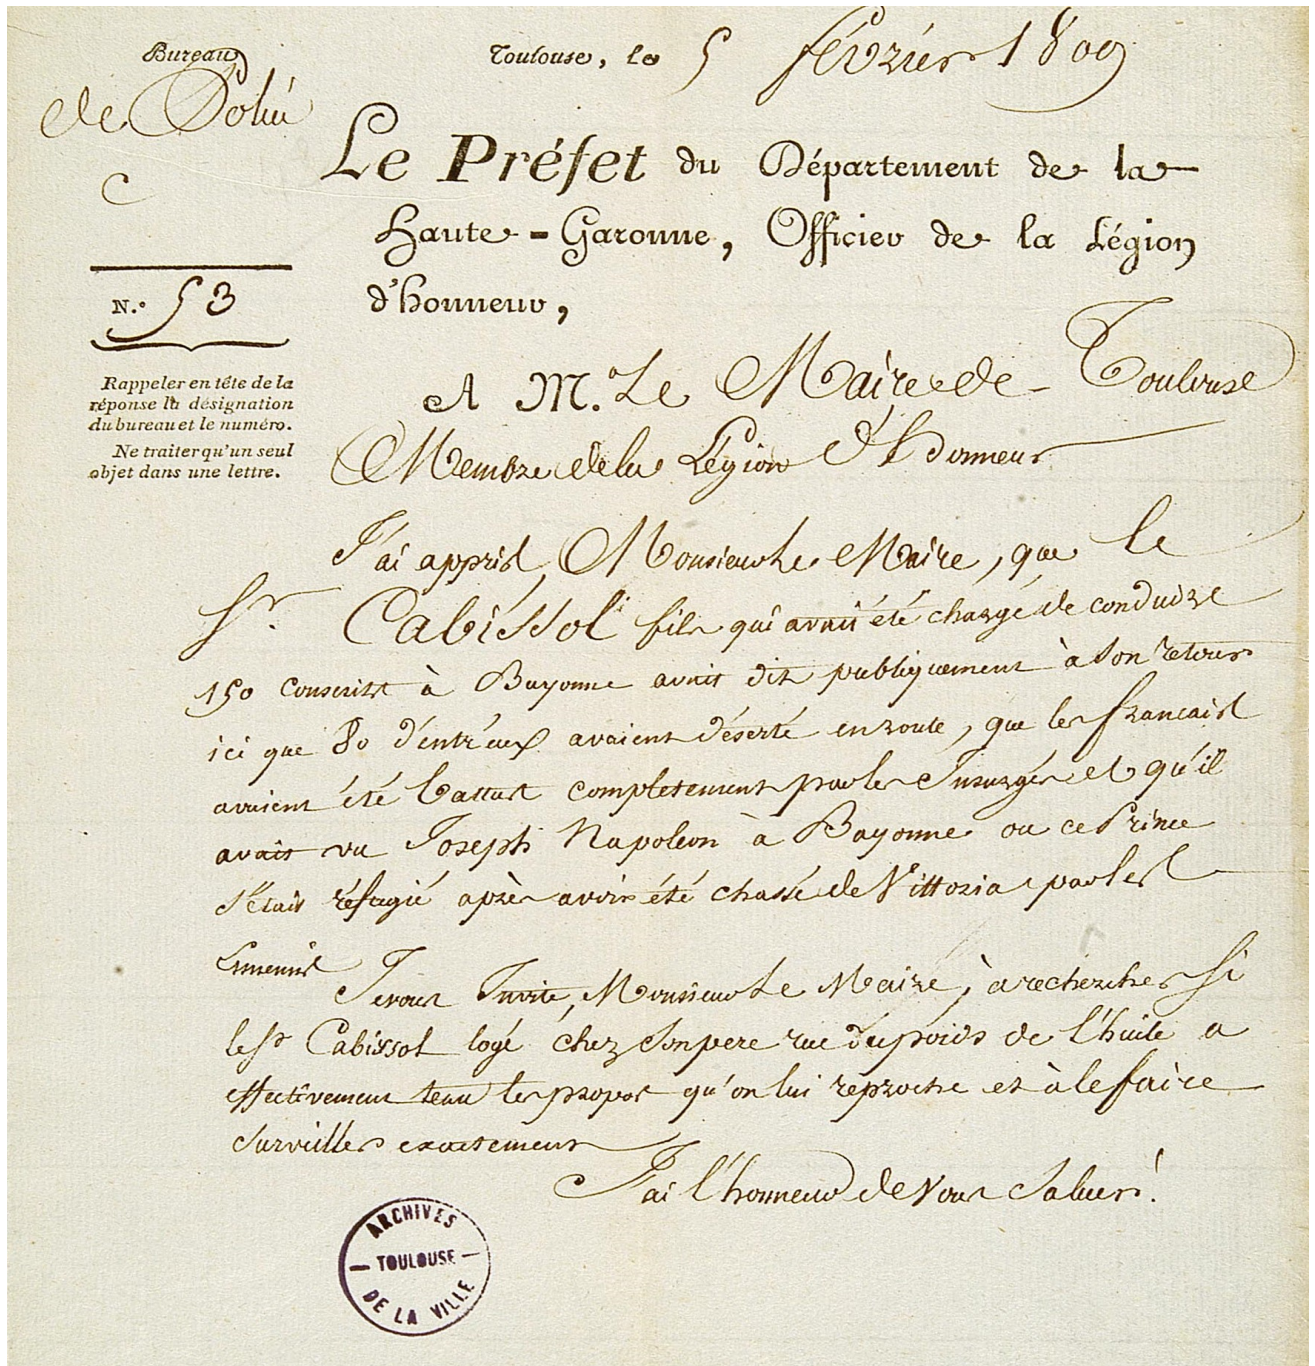 Bureau
de Police
C
N.° 53
Rappeler en tête de la
réponse la désignation
du bureau et le numéro.
Ne traiter qu'un seul
objet dans une lettre.
Toulouse, le 5 février 1809
Le Préfet du Département de la
Haute-Garonne, Officier de la Légion
d'honneur,
A M. Le Maire de Toulouse
Membre de la Légion d'honneur
J'ai appris, Monsieur Le Maire, que le
Sr. Cabissol fils qui avait été chargé de conduire
150 conscrits à Bayonne avait dit publiquement à son retour
ici que 80 d'entr'eux avaient déserté en route, que les français
avaient été battus completement par les Insurgés et qu'il
avait vu Joseph Napoléon à Bayonne ou ce Prince
s'était réfugié après avoir été chassé de Vittoria par les
Ennemis
Je vous Invite, Monsieur Le Maire, à rechercher si
le Sr Cabissol logé chez son pere rue du poids de l'huile a
effectivement tenu les propos qu'on lui reproche et à le faire
surveiller exactement
J'ai l'honneur de vous saluer.
ARCHIVES
TOULOUSE
DE LA VILLE